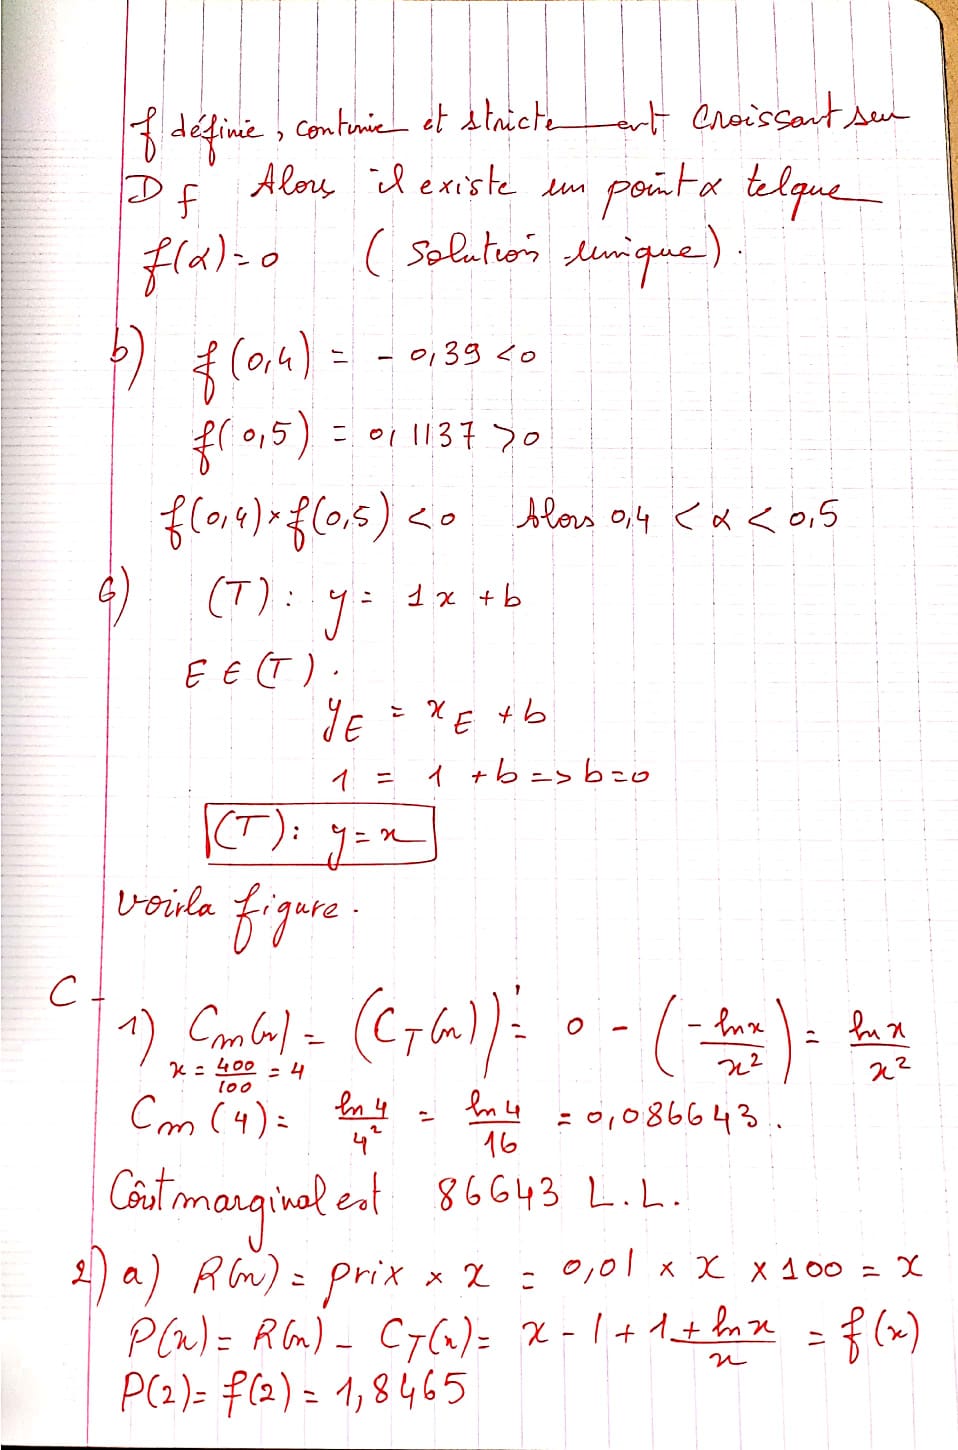 f définie, continue et strictement croissant sur
Df Alors il existe un point α telque
f(α)=0 (solution unique).
b) f(0,4) = -0,39 <0
f(0,5) = 0,1137 >0
f(0,4)×f(0,5) <0 Alors 0,4 < α < 0,5
6) (T): y = 1x + b
E ∈ (T).
y_E = x_E + b
1 = 1 + b => b=0
(T): y=x
voirla figure.
C-
1) Cm(x) = (C_T(x))' = 0 - (-lnx/x²) = ln x/x²
x = 400/100 = 4
Cm(4) = ln 4/4² = ln 4/16 = 0,086643.
Coût marginal est 86643 L.L.
2) a) R(x) = prix × x = 0,01 × x × 100 = x
P(x) = R(x) - C_T(x) = x - 1 + 1 + ln x/x = f(x)
P(2) = f(2) = 1,8465